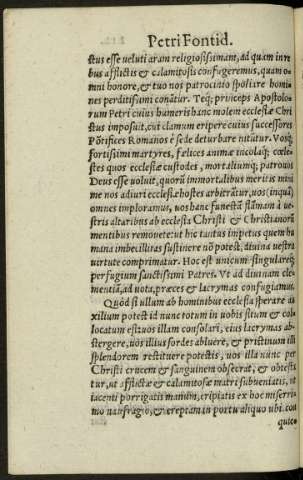 Petri Fontid.
ctus esse ueluti aram religiosissimam, ad quam in re
bus afflictis & calamitosis confugeremus, quasi o=
mni honore, & tuo nos patrocinio spoliare homi=
nes perditissimi conãtur. Teq; princeps Apostolo=
rum Petri cuius humeris hanc molem ecclesiæ Chri
stus imposuit, cui clauum eripere cuius successores
Põtifices Romanos è sede deturbare nitũtur. Vosq;
fortissimi martyres, fœlices animæ incolasq; cœle=
stes quos ecclesiæ custodes, mortaliumq; patronos
Deus esse uoluit, quorũ immortalibus meritis mini
me nos adiuri ecclesiæ hostes arbitrãtur, uos (inquã)
omnes imploramus, uos hanc funestã flãmam à ue=
stris altaribus ab ecclesia Christi & Christianorũ
mentibus remouete: ut hic tantus impetus quem hu
mana imbecillitas sustinere nõ potest, diuina uestra
uirtute comprimatur. Hoc est unicum singulareq;
perfugium sanctissimi Patres. Vt ad diuinam cle=
mentiã, ad uota, præces & lacrymas confugiamus.
Quòd si ullum ab hominibus ecclesia sperare au
xilium potest id nunc totum in uobis situm & col
locatum est: uos illam consolari, eius lacrymas ab=
stergere, uos illius sordes abluere, & pristinum illi
splendorem restituere potestis, uos illa nunc per
Christi crucem & sanguinem obsecrat, & obtesta
tur, ut afflictæ & calamitosæ matri subueniatis, ut
iacenti porrigatis manum, eripiatis ex hoc miserri=
mo naufragio, & ereptam in portu aliquo ubi con
quie=